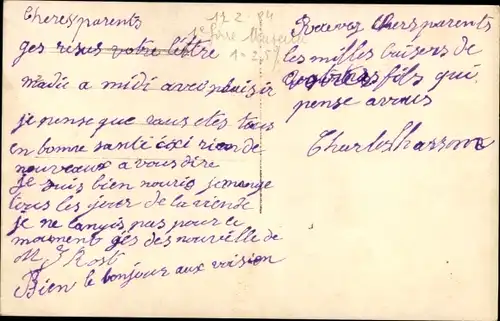 Cheres parents
ges resus votre lettre
Madie a midi avec plaisir
je pense que vous etes tous
en bonne santé ici rien de
nouveaux a vous dire
je suis bien nouris je mange
tous les jour de la viende
je ne langis pas pour le
moment ges des nouvelle de
M J Rost
Bien le bonjour aux voision
17 2 84
1 = 2,50
Recevez chers parents
les milles baisers de
votre fils qui
pense a vous
Charles